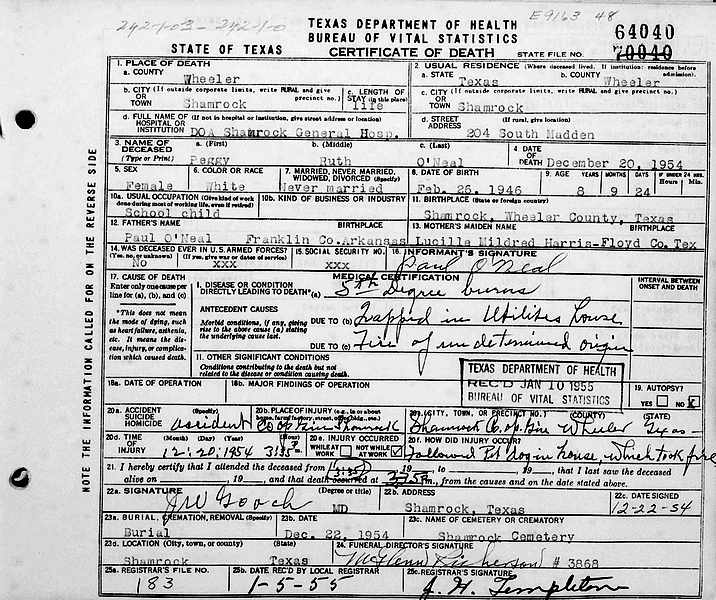 242-1-03 - 242-1-0
E9163 48
TEXAS DEPARTMENT OF HEALTH
BUREAU OF VITAL STATISTICS
STATE OF TEXAS CERTIFICATE OF DEATH STATE FILE NO. 70040
64040
1. PLACE OF DEATH
a. COUNTY
Wheeler
2. USUAL RESIDENCE (Where deceased lived. If institution: residence before admission).
a. STATE b. COUNTY
Texas Wheeler
b. CITY (If outside corporate limits, write RURAL and give precinct no.)
OR
TOWN Shamrock
c. LENGTH OF
STAY (in this place)
life
c. CITY (If outside corporate limits, write RURAL and give precinct no.)
OR
TOWN Shamrock
d. FULL NAME OF (If not in hospital or institution, give street address or location)
HOSPITAL OR
INSTITUTION DOA Shamrock General Hosp.
d. STREET (If rural, give location)
ADDRESS 204 South Madden
3. NAME OF DECEASED (Type or Print)
a. (First) b. (Middle) c. (Last)
Peggy Ruth O'Neal
4. DATE OF DEATH December 20, 1954
5. SEX
Female
6. COLOR OR RACE
White
7. MARRIED, NEVER MARRIED, WIDOWED, DIVORCED (Specify)
Never married
8. DATE OF BIRTH
Feb. 26. 1946
9. AGE YEARS MONTHS DAYS IF UNDER 24 HRS. Hours Min.
8 9 24
10a. USUAL OCCUPATION (Give kind of work done during most of working life, even if retired)
School child
10b. KIND OF BUSINESS OR INDUSTRY
11. BIRTHPLACE (State or foreign country)
Shamrock, Wheeler County, Texas
12. FATHER'S NAME BIRTHPLACE
Paul O'Neal Franklin Co.Arkansas
13. MOTHER'S MAIDEN NAME BIRTHPLACE
Lucille Mildred Harris-Floyd Co. Tex
14. WAS DECEASED EVER IN U.S. ARMED FORCES?
(Yes, no, or unknown) (If yes, give war or dates of service)
No xxx
15. SOCIAL SECURITY NO.
xxx
16. INFORMANT'S SIGNATURE
Paul O'Neal
17. CAUSE OF DEATH
Enter only one cause per line for (a), (b), and (c)
*This does not mean the mode of dying, such as heart failure, asthenia, etc. It means the disease, injury, or complication which caused death.
MEDICAL CERTIFICATION
INTERVAL BETWEEN ONSET AND DEATH
I. DISEASE OR CONDITION
DIRECTLY LEADING TO DEATH* (a) 5th Degree burns
ANTECEDENT CAUSES
Morbid conditions, if any, giving rise to the above cause (a) stating the underlying cause last.
DUE TO (b) Trapped in Utilites house
DUE TO (c) Fire of undetermined origin
II. OTHER SIGNIFICANT CONDITIONS
Conditions contributing to the death but not related to the disease or condition causing death.
TEXAS DEPARTMENT OF HEALTH
REC'D JAN 10 1955
BUREAU OF VITAL STATISTICS
18a. DATE OF OPERATION
18b. MAJOR FINDINGS OF OPERATION
19. AUTOPSY?
YES NO X
20a. ACCIDENT (Specify)
SUICIDE
HOMICIDE accident
20b. PLACE OF INJURY (e.g., in or about home, farm, factory, street, office bldg., etc.)
Co op Gin Shamrock
20c. (CITY, TOWN, OR PRECINCT NO.) (COUNTY) (STATE)
Shamrock Co. op. Gin Wheeler Texas
20d. TIME (Month) (Day) (Year) (Hour)
OF
INJURY 12:20:1954 3:35 P.M.
20e. INJURY OCCURRED
WHILE AT WORK NOT WHILE AT WORK
20f. HOW DID INJURY OCCUR?
Followed Pet dog in house, which took fire
21. I hereby certify that I attended the deceased from 19 to 19 that I last saw the deceased
alive on 19 and that death occurred at m., from the causes and on the date stated above.
22a. SIGNATURE (Degree or title)
JW Gooch MD
22b. ADDRESS
Shamrock, Texas
22c. DATE SIGNED
12-22-54
23a. BURIAL, CREMATION, REMOVAL (Specify)
Burial
23b. DATE
Dec. 22, 1954
23c. NAME OF CEMETERY OR CREMATORY
Shamrock Cemetery
23d. LOCATION (City, town, or county) (State)
Shamrock Texas
24. FUNERAL DIRECTOR'S SIGNATURE
# 3868
25a. REGISTRAR'S FILE NO.
183
25b. DATE REC'D BY LOCAL REGISTRAR
1-5-55
25c. REGISTRAR'S SIGNATURE
J. H. Templeton
NOTE THE INFORMATION CALLED FOR ON THE REVERSE SIDE